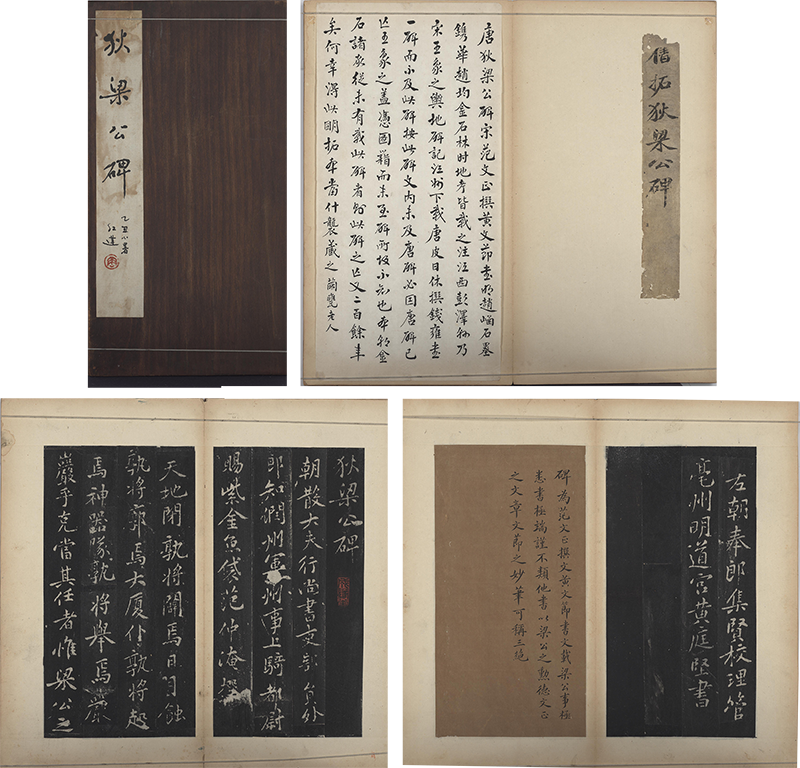 狄梁公碑
乙丑小暑
拓狄梁公碑
唐狄梁公碑宋范文正撰黄文節書明趙崡石墨
鐫華趙均金石林时地考皆载之注江西彭澤縣乃
宋王象之輿地碑記江州下载唐皮日休撰錢雍書
一碑而不及此碑按此碑文内未及唐碑必因唐碑已
亡王象之盖憑圖籍而未至碑所故不知也本朝金
石諸家從未有载此碑者則此碑之亡又二百餘年
矣何幸得此明拓本當什襲藏之蘭甕老人
狄梁公碑
朝散大夫行尚書吏部員外
郎知潤州軍州事上騎都尉
賜紫金魚袋范仲淹撰
天地閉孰將闢焉日月蝕
孰將廓焉大厦仆孰將起
焉神器墜孰將舉焉巖
巖乎克當其任者惟梁公之
左朝奉郎集賢校理管
亳州明道宫黄庭堅書
碑為范文正撰文黄文節書文载梁公事極
悉書極端謹不類他書以梁公之勲德文正
之文章文節之妙筆可稱三絶